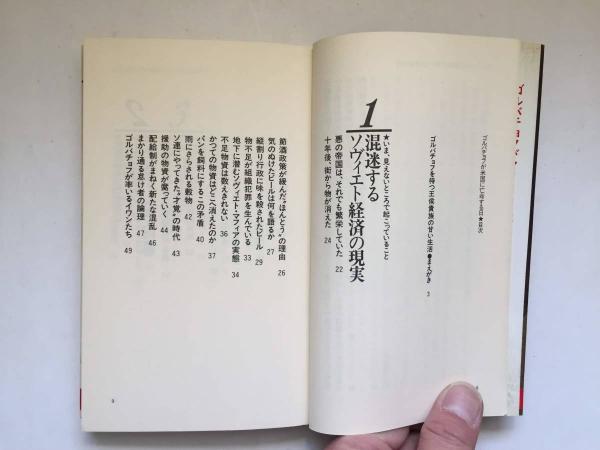 ゴルバチョフが米国に亡命する日★目次
ゴルバチョフを待つ王侯貴族の甘い生活●まえがき 3
1
混迷する
ソヴィエト経済の現実
★いま、見えないところで起こっていること
悪の帝国は、それでも繁栄していた 22
十年後、街から物が消えた 24
節酒政策が緩んだ“ほんとう”の理由 26
気のぬけたビールは何を語るか 27
縦割り行政に味を殺されたビール 29
物不足が組織犯罪を生んでいる 33
地下に潜むソヴィエト・マフィアの実態 34
不足物資は数えきれない 36
かつての物資はどこへ消えたのか 37
パンを飼料にするこの矛盾 40
雨にさらされる穀物 42
ソ連にやってきた“才覚”の時代 43
援助の物資が腐っていく 44
配給制がまねく新たな混乱 46
まかり通る怠け者の論理 47
ゴルバチョフが率いるイワンたち 49
9